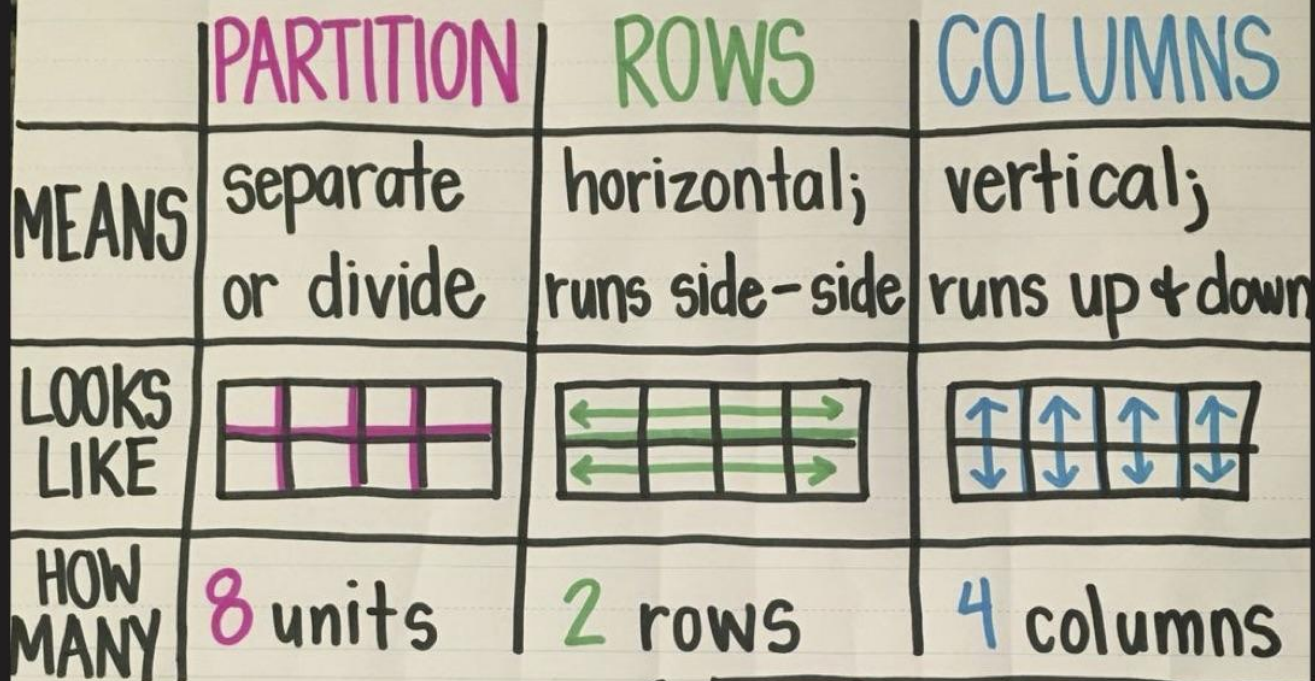 PARTITION ROWS COLUMNS
MEANS separate or divide horizontal; runs side-side vertical; runs up & down
LOOKS LIKE
HOW MANY 8 units 2 rows 4 columns